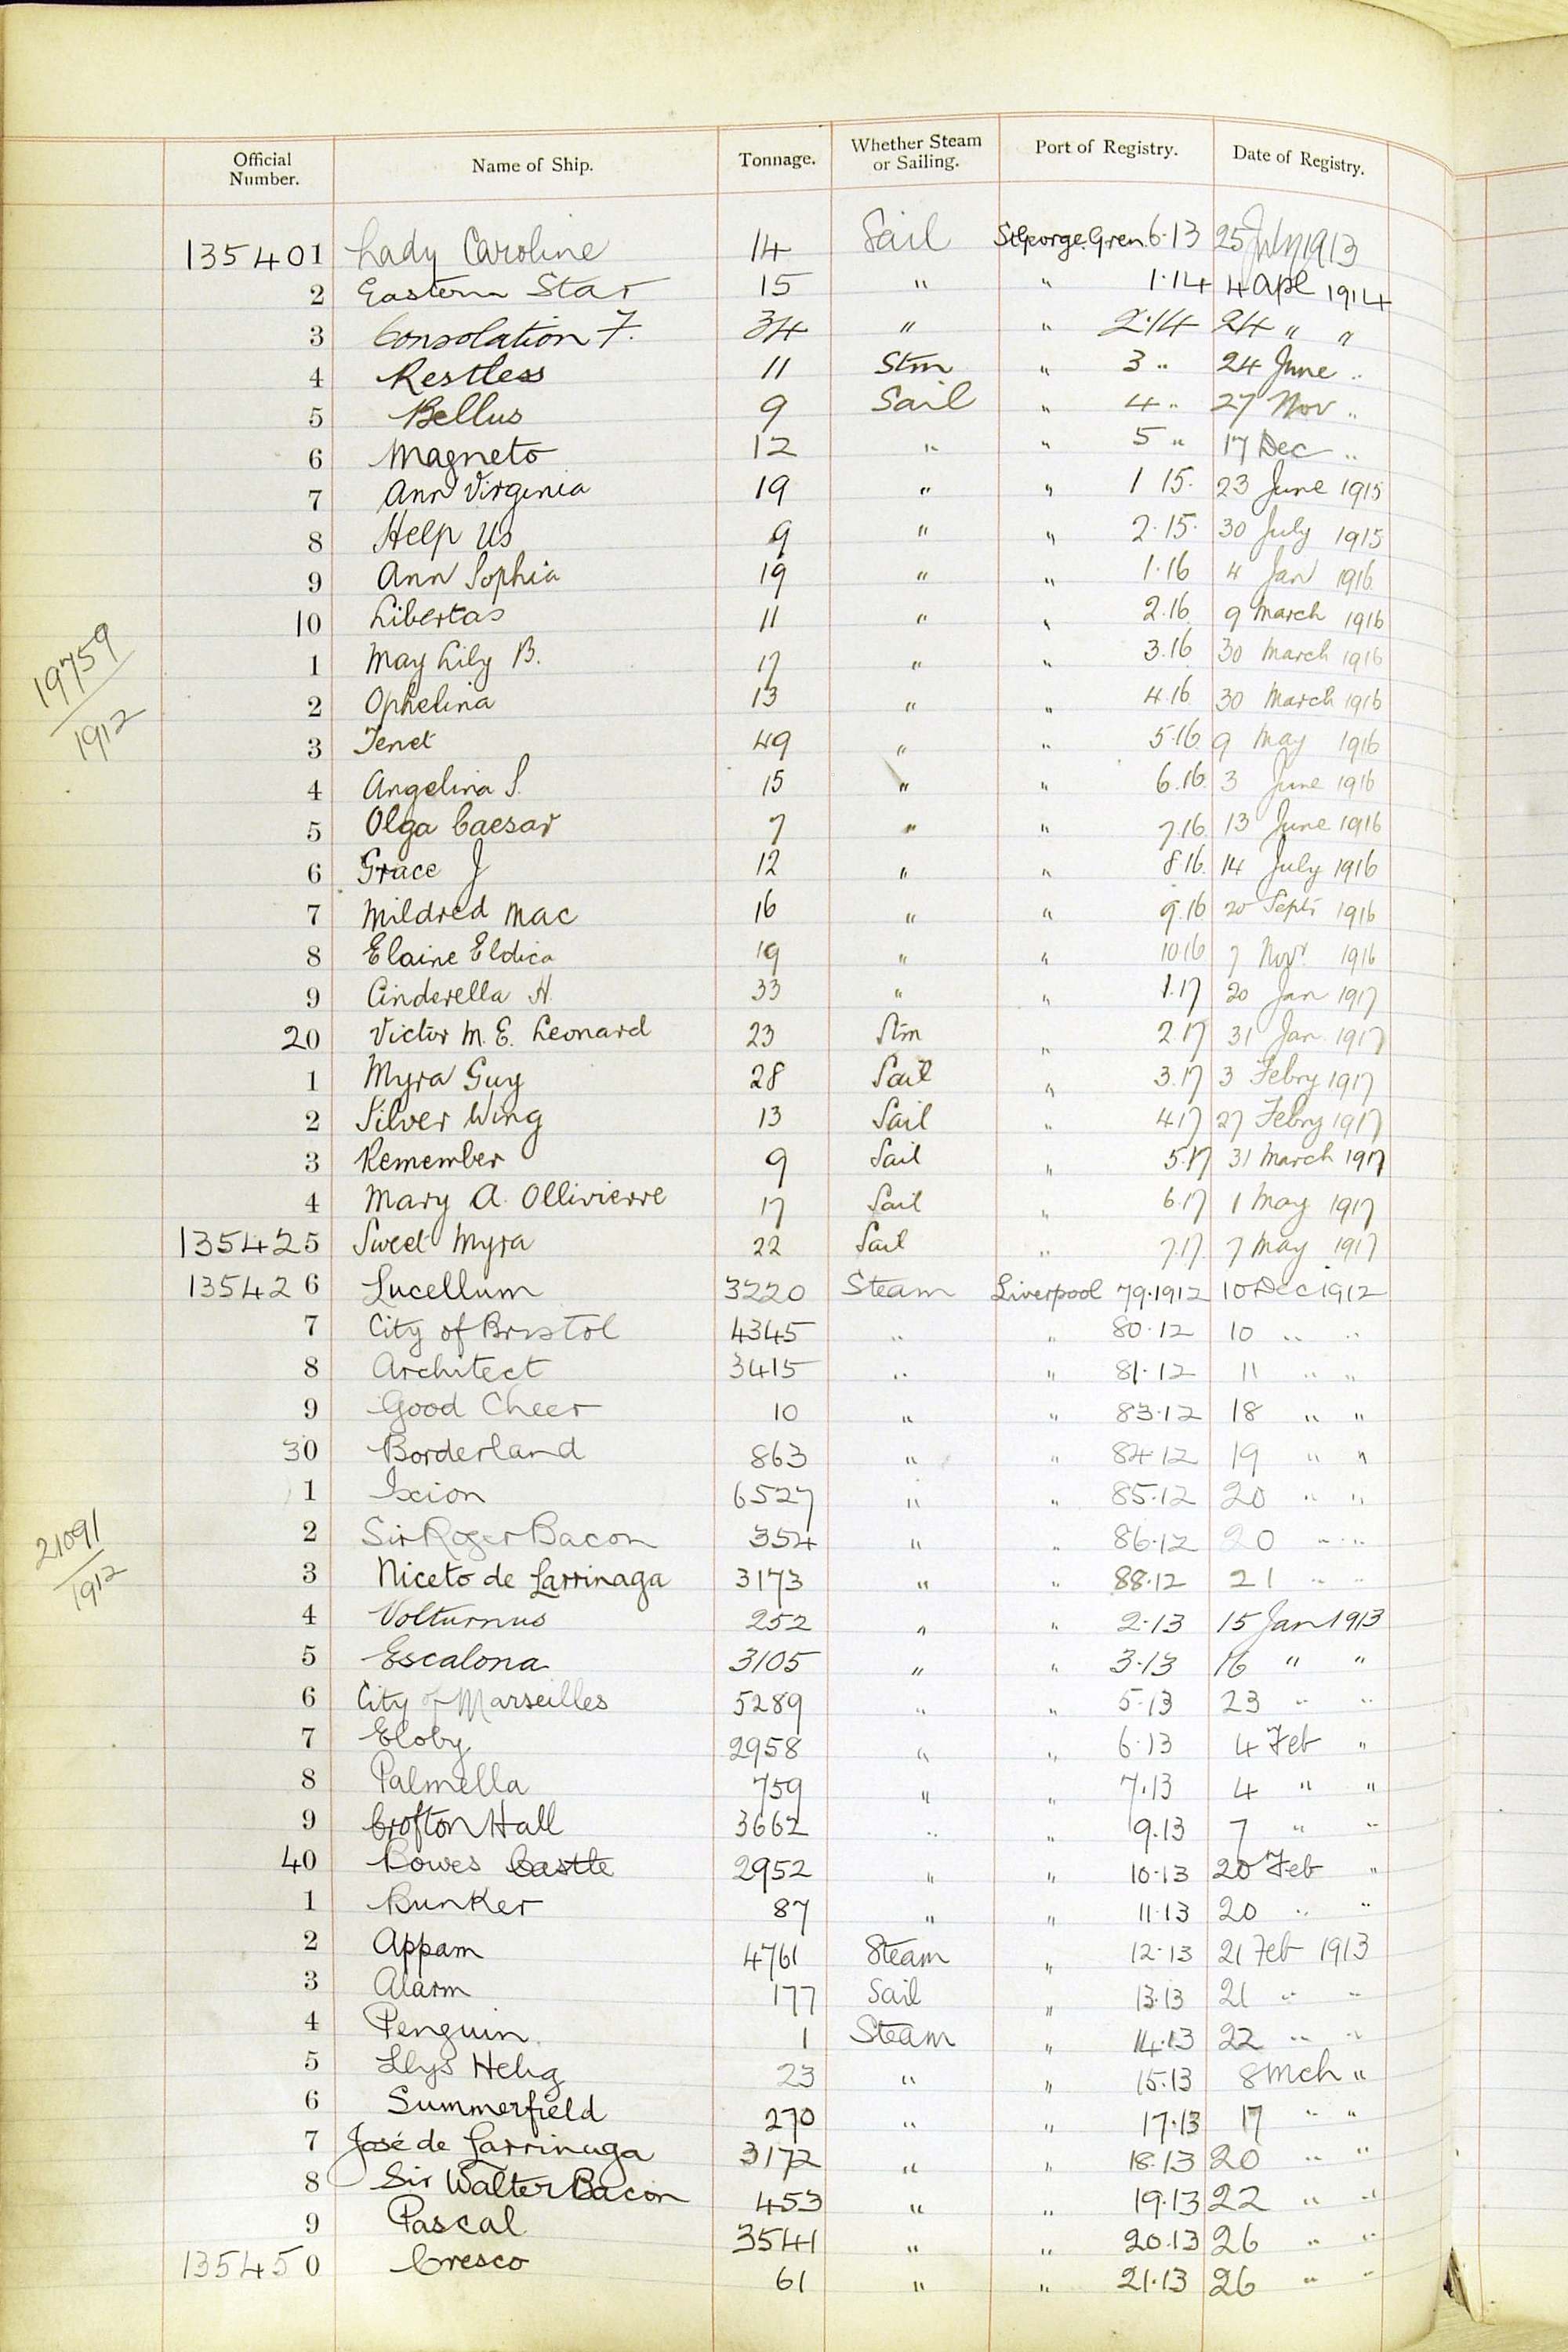 Official Number. Name of Ship. Tonnage. Whether Steam or Sailing. Port of Registry. Date of Registry.
135401 Lady Caroline 14 Sail St George. Gren. 6·13 25 July 1913
2 Eastern Star 15 " " 1·14 4 Apl 1914
3 Consolation F. 34 " " 2·14 24 " "
4 Restless 11 Stm " 3 " 24 June "
5 Bellus 9 Sail " 4 " 27 Nov "
6 Magneto 12 " " 5 " 17 Dec "
7 Ann Virginia 19 " " 1 15. 23 June 1915
8 Help Us 9 " " 2·15· 30 July 1915
9 Ann Sophia 19 " " 1·16 4 Jan 1916
10 Libertas 11 " " 2·16 9 March 1916
1 May Lily B. 17 " " 3.16 30 March 1916
2 Ophelina 13 " " 4.16 30 March 1916
3 Tenet 49 " " 5·16 9 May 1916
4 Angelina S. 15 " " 6.16 3 June 1916
5 Olga Caesar 7 " " 7.16 13 June 1916
6 Grace J 12 " " 8·16 14 July 1916
7 Mildred Mac 16 " " 9.16 20 Sept 1916
8 Elaine Eldica 19 " " 10·16 7 Novr 1916
9 Cinderella H. 33 " " 1.17 20 Jan 1917
20 Victor M. E. Leonard 23 Stm " 2.17 31 Jan 1917
1 Myra Guy 28 Sail " 3.17 3 Febry 1917
2 Silver Wing 13 Sail " 4.17 27 Febry 1917
3 Remember 9 Sail " 5.17 31 March 1917
4 Mary A. Ollivierre 17 Sail " 6.17 1 May 1917
135425 Sweet Myra 22 Sail " 7.17. 7 May 1917
135426 Lucellum 3220 Steam Liverpool 79·1912 10 Dec 1912
7 City of Bristol 4345 " " 80·12 10 " "
8 Architect 3415 " " 81·12 11 " "
9 Good Cheer 10 " " 83·12 18 " "
30 Borderland 863 " " 84·12 19 " "
1 Ixion 6527 " " 85·12 20 " "
2 Sir Roger Bacon 354 " " 86·12 20 " "
3 Niceto de Larrinaga 3173 " " 88·12 21 " "
4 Volturnus 252 " " 2·13 15 Jan 1913
5 Escalona 3105 " " 3·13 16 " "
6 City of Marseilles 5289 " " 5·13 23 " "
7 Eloby 2958 " " 6·13 4 Feb "
8 Palmella 759 " " 7·13 4 " "
9 Crofton Hall 3662 " " 9.13 7 " "
40 Bowes Castle 2952 " " 10·13 20 Feb "
1 Bunker 87 " " 11·13 20 " "
2 Appam 4761 Steam " 12·13 21 Feb 1913
3 Alarm 177 Sail " 13·13 21 " "
4 Penguin 1 Steam " 14·13 22 " "
5 Llys Helig 23 " " 15.13 8 Mch "
6 Summerfield 270 " " 17·13 17 " "
7 José de Larrinaga 3172 " " 18.13 20 " "
8 Sir Walter Bacon 453 " " 19·13 22 " "
9 Pascal 3541 " " 20.13 26 " "
135450 Cresco 61 " " 21·13 26 " "
19759
1912
21091
1912